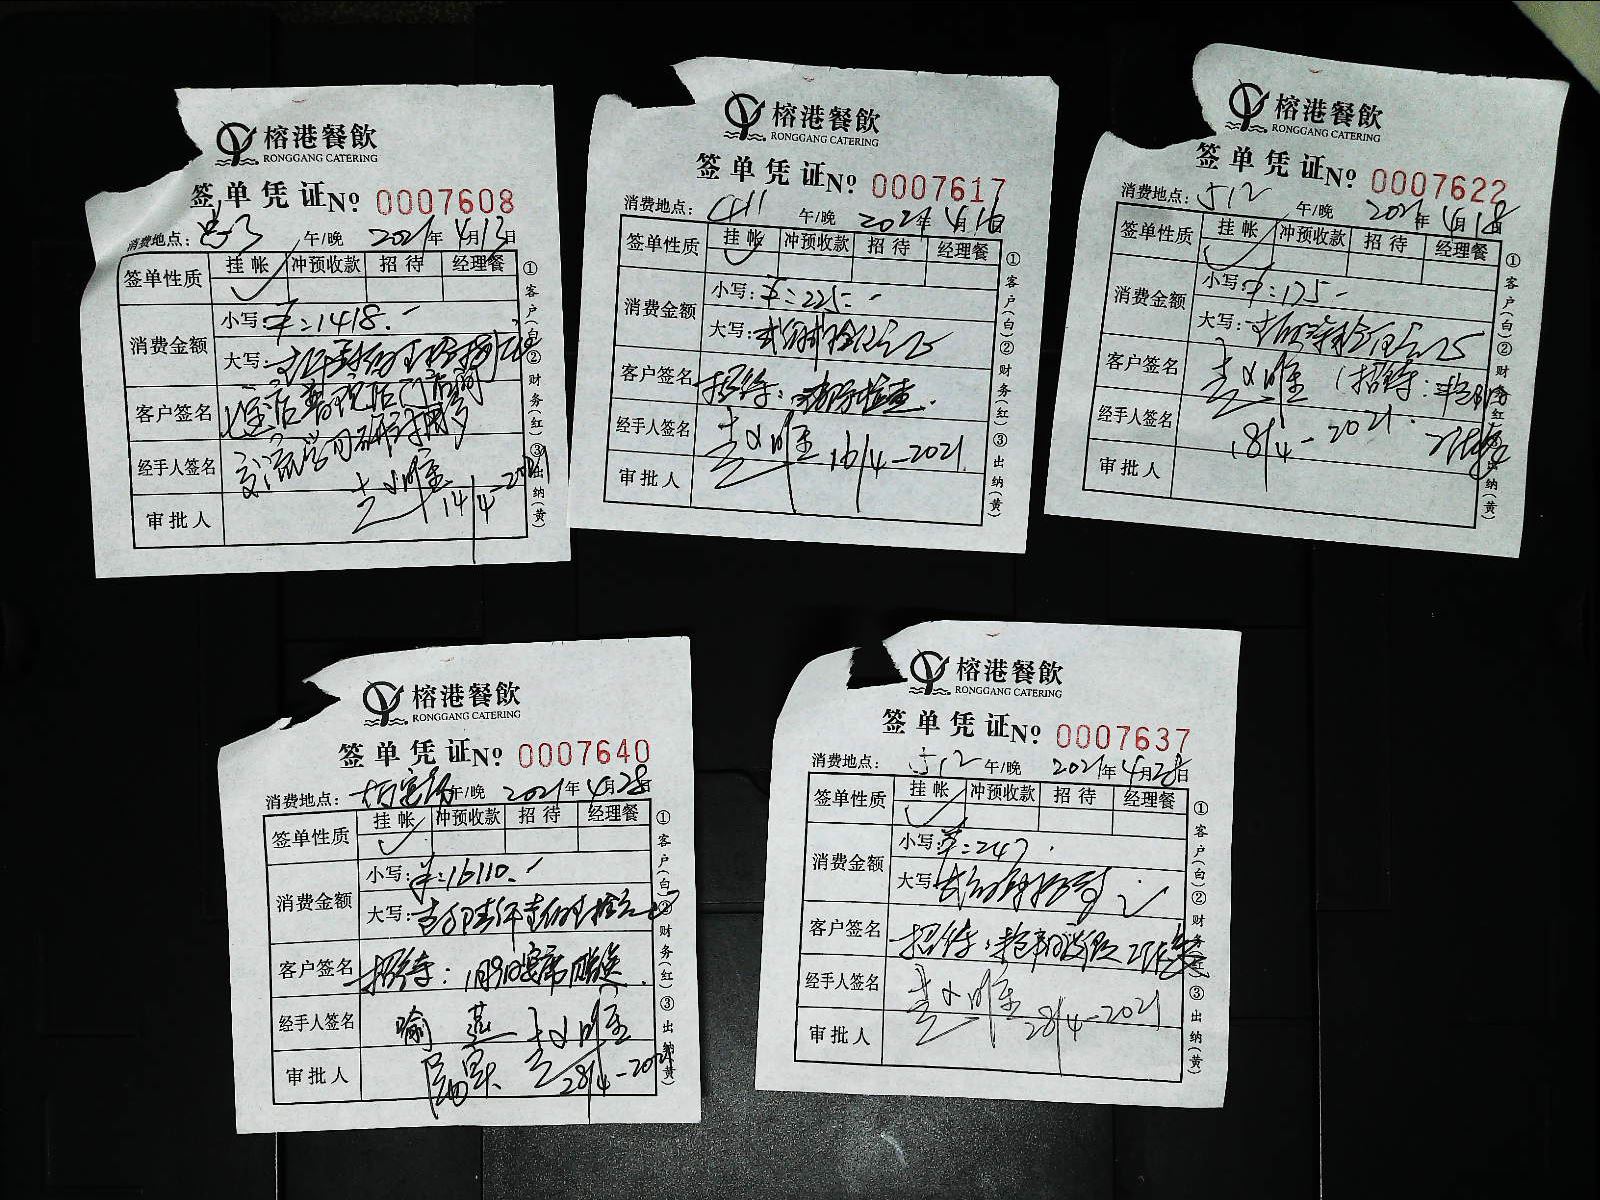 榕港餐飲
RONGGANG CATERING
签单凭证 № 0007608
消费地点: 午/晚 2021年4月13日
签单性质 挂帐 冲预收款 招待 经理餐
消费金额 小写: ¥:1418.-
大写:
客户签名
经手人签名
审批人 14/4-2021
①客户(白)②财务(红)③出纳(黄)
榕港餐飲
RONGGANG CATERING
签单凭证 № 0007617
消费地点: 411 午/晚 2021年4月16日
签单性质 挂帐 冲预收款 招待 经理餐
消费金额 小写: ¥:225.-
大写:
客户签名 招待: 检查.
经手人签名 16/4-2021.
审批人
①客户(白)②财务(红)③出纳(黄)
榕港餐飲
RONGGANG CATERING
签单凭证 № 0007622
消费地点: 512 午/晚 2021年4月18日
签单性质 挂帐 冲预收款 招待 经理餐
消费金额 小写: ¥:175-
大写:
客户签名 (招待:
经手人签名 18/4-2021.
审批人
①客户(白)②财务(红)③出纳(黄)
榕港餐飲
RONGGANG CATERING
签单凭证 № 0007640
消费地点: 午/晚 2021年4月28日
签单性质 挂帐 冲预收款 招待 经理餐
消费金额 小写: ¥:16110.-
大写:
客户签名 招待: 1月9日宴席
经手人签名 喻
审批人 28/4-2021
①客户(白)②财务(红)③出纳(黄)
榕港餐飲
RONGGANG CATERING
签单凭证 № 0007637
消费地点: 512 午/晚 2021年4月28日
签单性质 挂帐 冲预收款 招待 经理餐
消费金额 小写: ¥:247.
大写:
客户签名 招待:
经手人签名 28/4-2021
审批人
①客户(白)②财务(红)③出纳(黄)